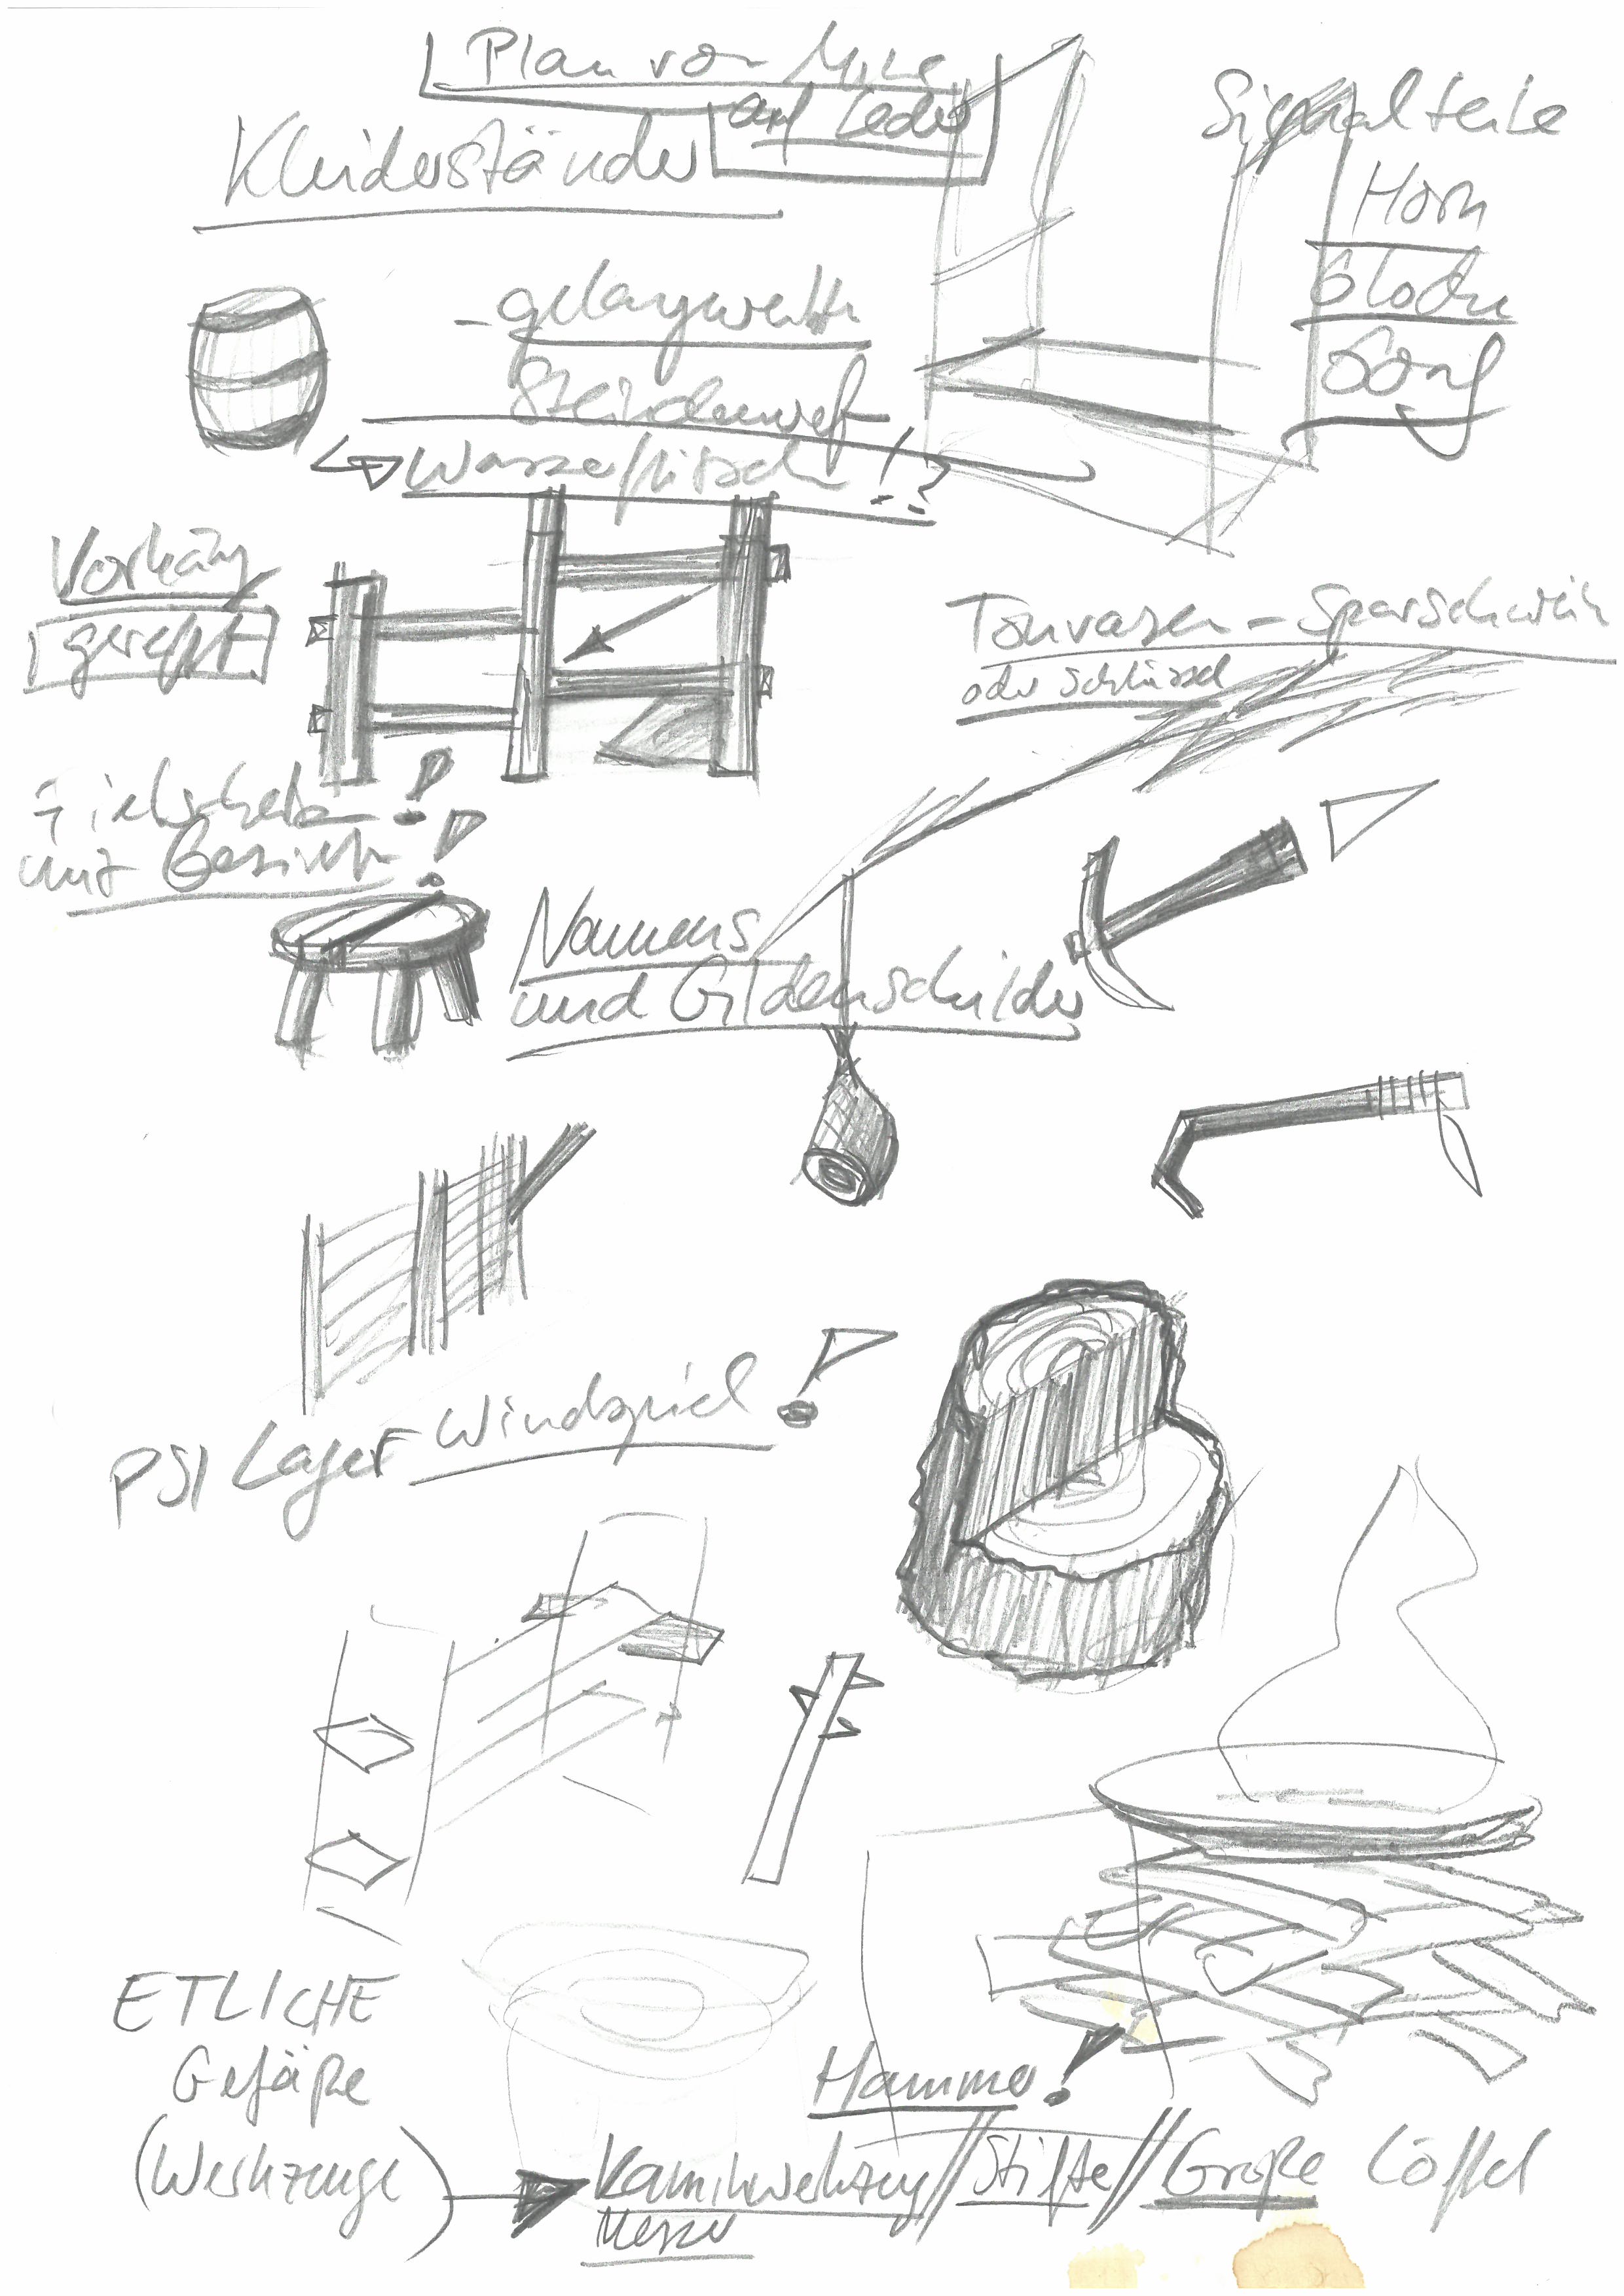 Plan von
auf Leder
Kleiderständer
Signalteile
Horn
Glocke
Gong
Vorhäng
gerefft
Tonvasen - Sparschwein
oder Schlüssel
Zielscheibe !
mit Gesicht !
Namens
und Gildenschilder
PSI Lager - Windspiel !
ETLICHE
Gefäße
(Werkzeuge)
Hammer !
Kaminwerkzeug // Stifte // Große Löffel
Messer